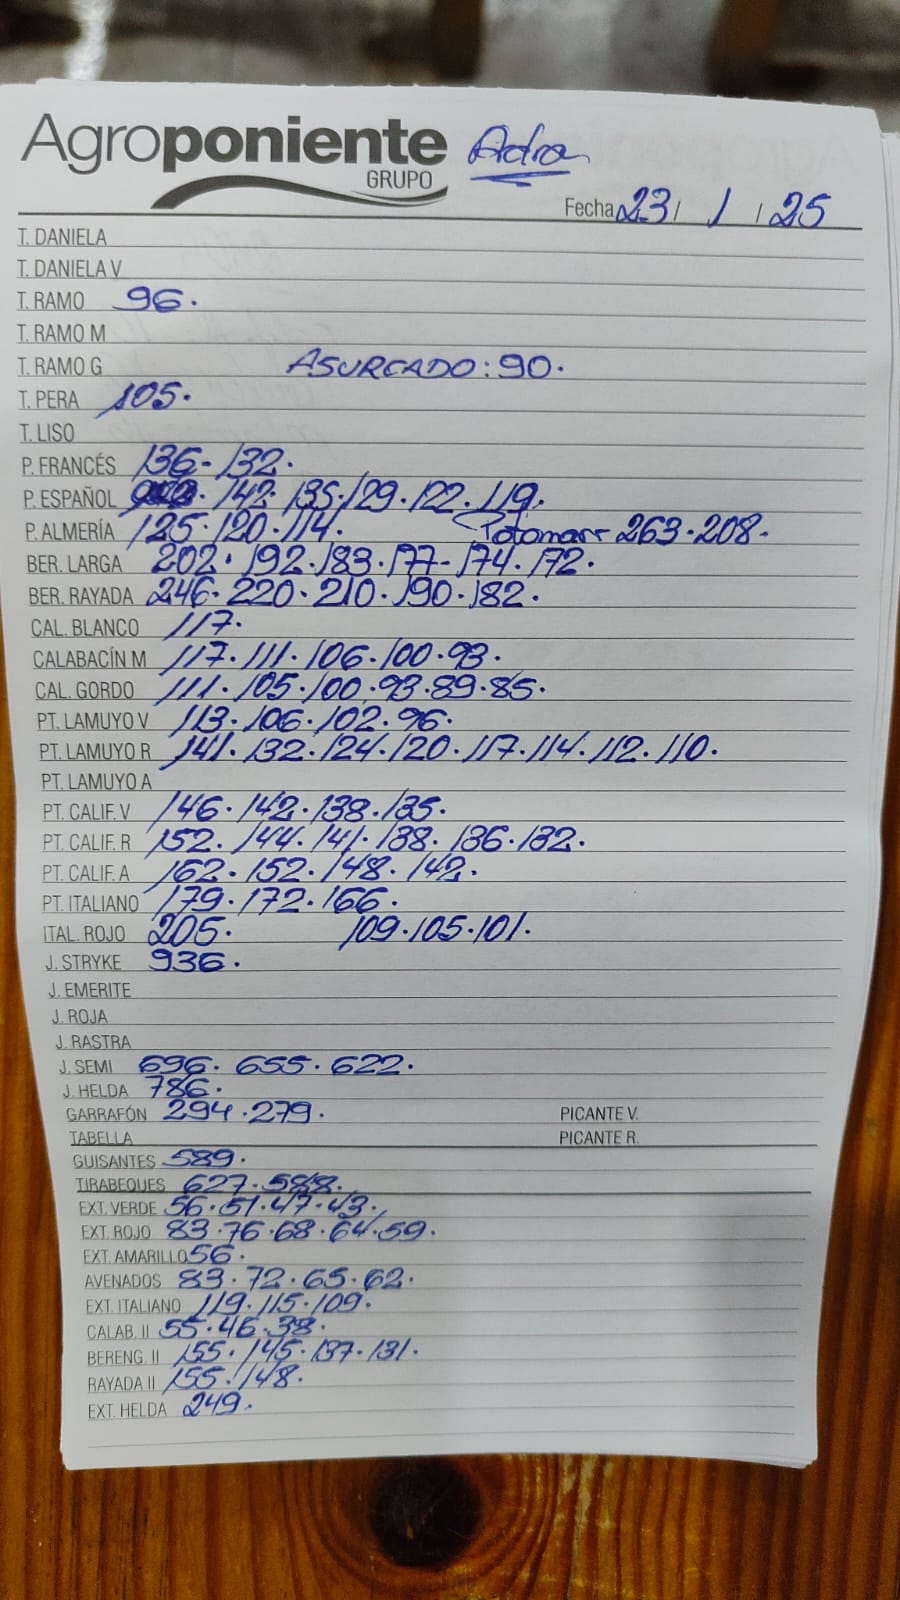 Agroponiente Adra
GRUPO
Fecha 23 / 1 / 25
T. DANIELA
T. DANIELA V
T. RAMO 96.
T. RAMO M
T. RAMO G ASURCADO: 90.
T. PERA 105.
T. LISO
P. FRANCÉS 136- 132.
P. ESPAÑOL 142. 135. 129. 122. 119.
P. ALMERÍA 125. 120. 114. 263. 208.
BER. LARGA 202. 192. 183. 177- 174. 172.
BER. RAYADA 246. 220. 210. 190. 182.
CAL. BLANCO 117.
CALABACÍN M 117. 111. 106. 100. 93.
CAL. GORDO 111. 105. 100. 93. 89. 85.
PT. LAMUYO V 113. 106. 102. 96.
PT. LAMUYO R 141. 132. 124. 120. 117. 114. 112. 110.
PT. LAMUYO A
PT. CALIF. V 146. 142. 138. 135.
PT. CALIF. R 152. 144. 141. 138. 136. 132.
PT. CALIF. A 162. 152. 148. 142.
PT. ITALIANO 179. 172. 166.
ITAL. ROJO 205. 109. 105. 101.
J. STRYKE 936.
J. EMERITE
J. ROJA
J. RASTRA
J. SEMI 696. 655. 622.
J. HELDA 786.
GARRAFÓN 294. 279. PICANTE V.
TABELLA PICANTE R.
GUISANTES 589.
TIRABEQUES 627. 588.
EXT. VERDE 56. 51. 47. 43.
EXT. ROJO 83. 76. 68. 64. 59.
EXT. AMARILLO 56.
AVENADOS 83. 72. 65. 62.
EXT. ITALIANO 119. 115. 109.
CALAB. II 55. 46. 38.
BERENG. II 155. 145. 137. 131.
RAYADA II 155. 148.
EXT. HELDA 249.